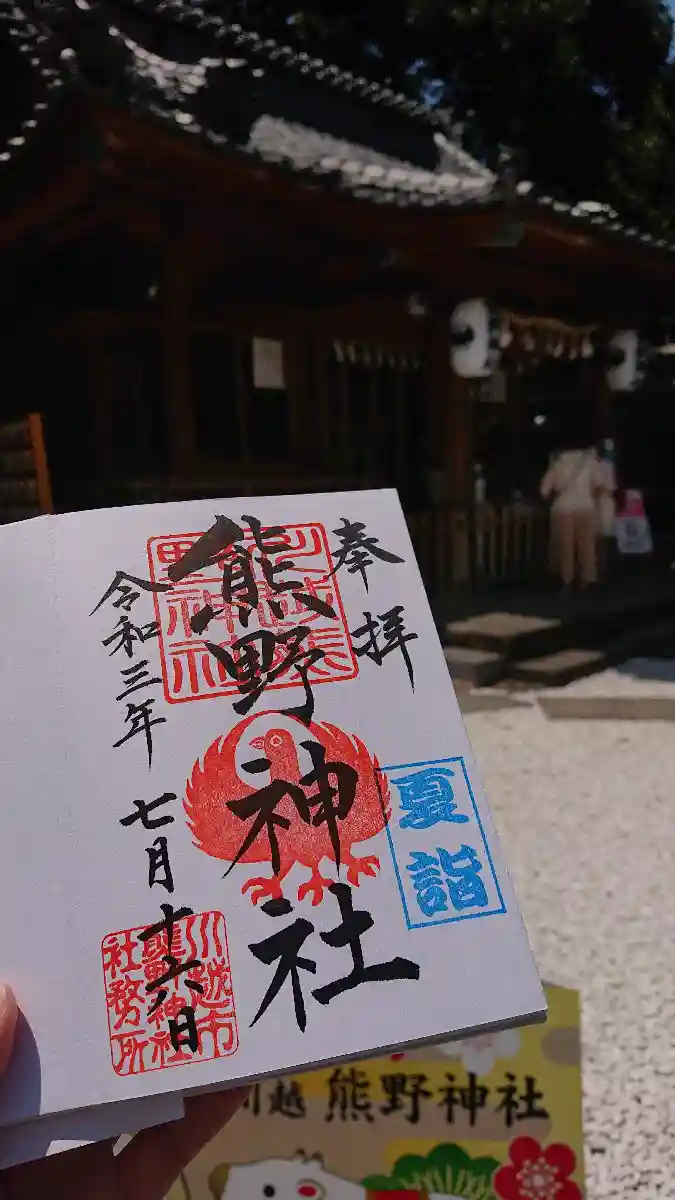 奉拝
熊野神社
令和三年
七月
十六日
夏詣
川越市
熊野神社
社務所
川越 熊野神社